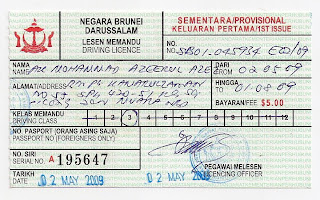 NEGARA BRUNEI
DARUSSALAM
LESEN MEMANDU
DRIVING LICENCE
SEMENTARA/PROVISIONAL
KELUARAN PERTAMA/1ST ISSUE
NO.
NO.
NAMA
NAME
MOHAMMAD AZEERUL AZE
DARI
FROM
02.05.09
ALAMAT/ADDRESS
HINGGA
TO
01.08.09
BAYARAN/FEE $5.00
KELAS MEMANDU
DRIVING CLASS
1 2 3 4 5 6 7 8 9 10 11 12 13
NO. PASPORT (ORANG ASING SAJA)
PASSPORT NO (FOREIGNERS ONLY)
NO. SIRI
SERIAL NO.
A 195647
TARIKH
DATE
02 MAY 2009
02 MAY 2009
PEGAWAI MELESEN
LICENCING OFFICER